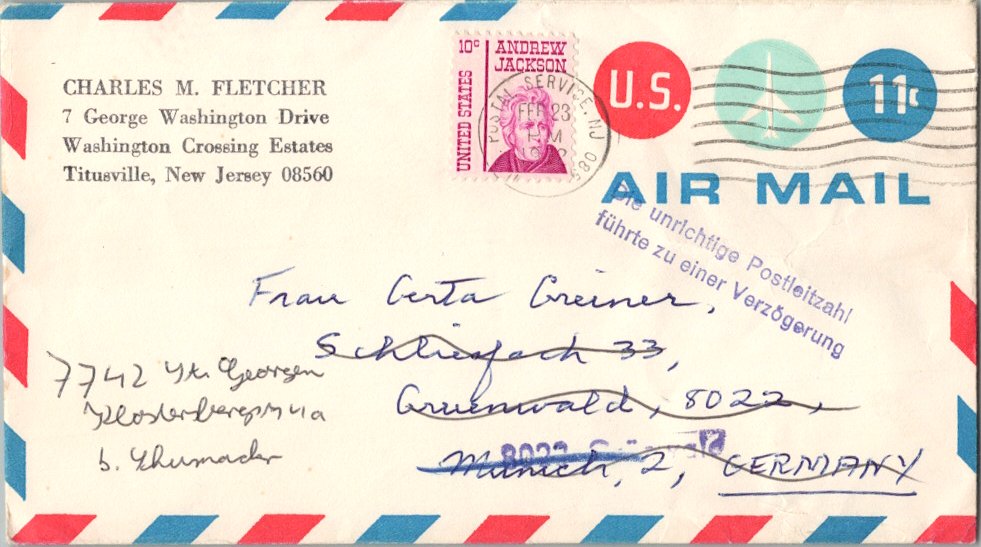 CHARLES M. FLETCHER
7 George Washington Drive
Washington Crossing Estates
Titusville, New Jersey 08560
10c
ANDREW
JACKSON
UNITED STATES
POSTAL SERVICE, NJ 080
FEB 23
U.S.
11c
AIR MAIL
Die unrichtige Postleitzahl
führte zu einer Verzögerung
Frau Certa Greiner,
Schliesfach 33,
Gruenwald, 8022,
8022
Munich, 2, GERMANY
7742 St. Georgen
b. Schumacher